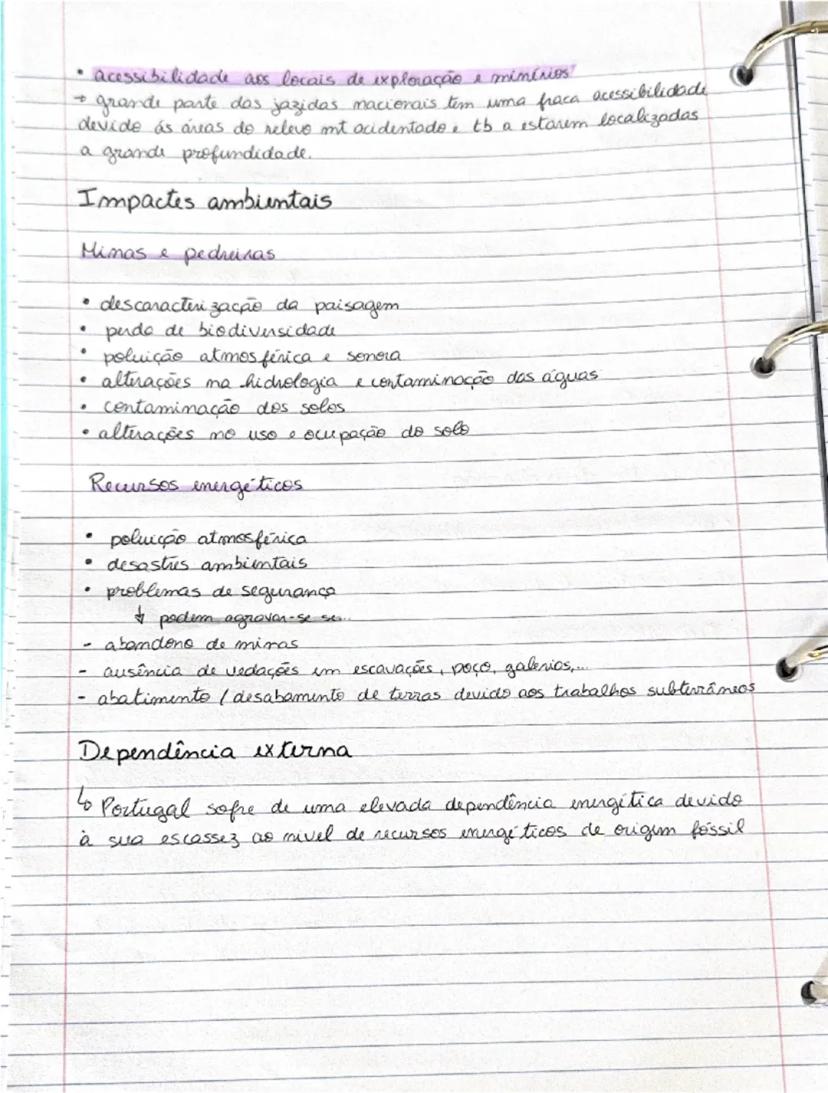 • acessibilidade aos locais de exploração e minérios
→ grande parte das jazidas nacionais tem uma fraca acessibilidade
devido ás áreas do relevo mt acidentado e tb a estarem localizadas
a grande profundidade.
Impactes ambientais
Minas e pedreiras
• descaracterização da paisagem
• perda de biodiversidade
• poluição atmosférica e sonora
• alterações na hidrologia e contaminação das águas
• contaminação dos solos
• alterações no uso e ocupação do solo
Recursos energéticos
• poluição atmosférica
• desastres ambientais
• problemas de segurança
↓ podem agravar-se se...
- abandono de minas
- ausência de vedações em escavações, poço, galerias,...
- abatimento / desabamento de terras devido aos trabalhos subterrâneos
Dependência externa
↳ Portugal sofre de uma elevada dependência energética devido
à sua escassez ao nível de recursos energéticos de origem fóssil